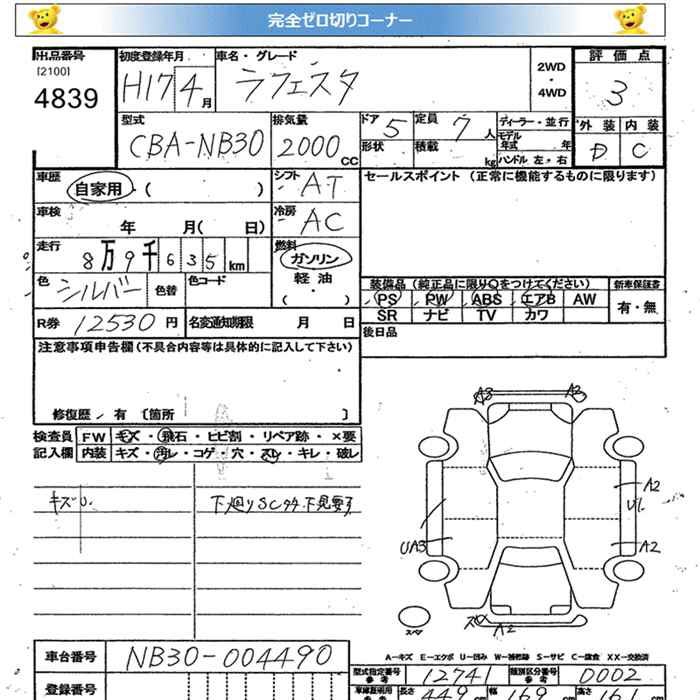 完全ゼロ切りコーナー
出品番号 初度登録年月 車名・グレード 2WD ・ 4WD 評価点
[2100]
4839 H17 4月 ラフェスタ 3
型式 排気量 ドア 定員 ディーラー・並行 外装 内装
CBA-NB30 2000cc 5 7人 モデル年式 年 D C
形状 積載 kg ハンドル 左・右
車歴 自家用・( ) シフト AT セールスポイント (正常に機能するものに限ります)
車検 年 月( 日) 冷房 AC
走行 8万9千635km 燃料 ガソリン
色 シルバー 色替 色コード 軽油 ・( )
装備品 (純正品に限り○をつけてください) 新車保証書
PS PW ABS エアB AW 有・無
R券 12530円 名変通知期限 月 日 SR ナビ TV カワ
注意事項申告欄(不具合内容等は具体的に記入して下さい) 後日品
修復歴 / 有 [箇所 ]
検査員 FW キズ・飛石・ヒビ割・リペア跡・×要
記入欄 内装 キズ・汚レ・コゲ・穴・スレ・キレ・破レ
A3 A3
キズU. 下廻りSCサ.下見要す
A2
UA3 A2
スペア
A2
A-キズ E-エクボ U-凹み W-補修跡 S-サビ C-腐食 XX-交換済
車台番号 NB30-004490 型式指定番号 参考 12741 類別区分番号 参考 0002
登録番号 長さ 449cm 幅 169cm 高さ 161cm